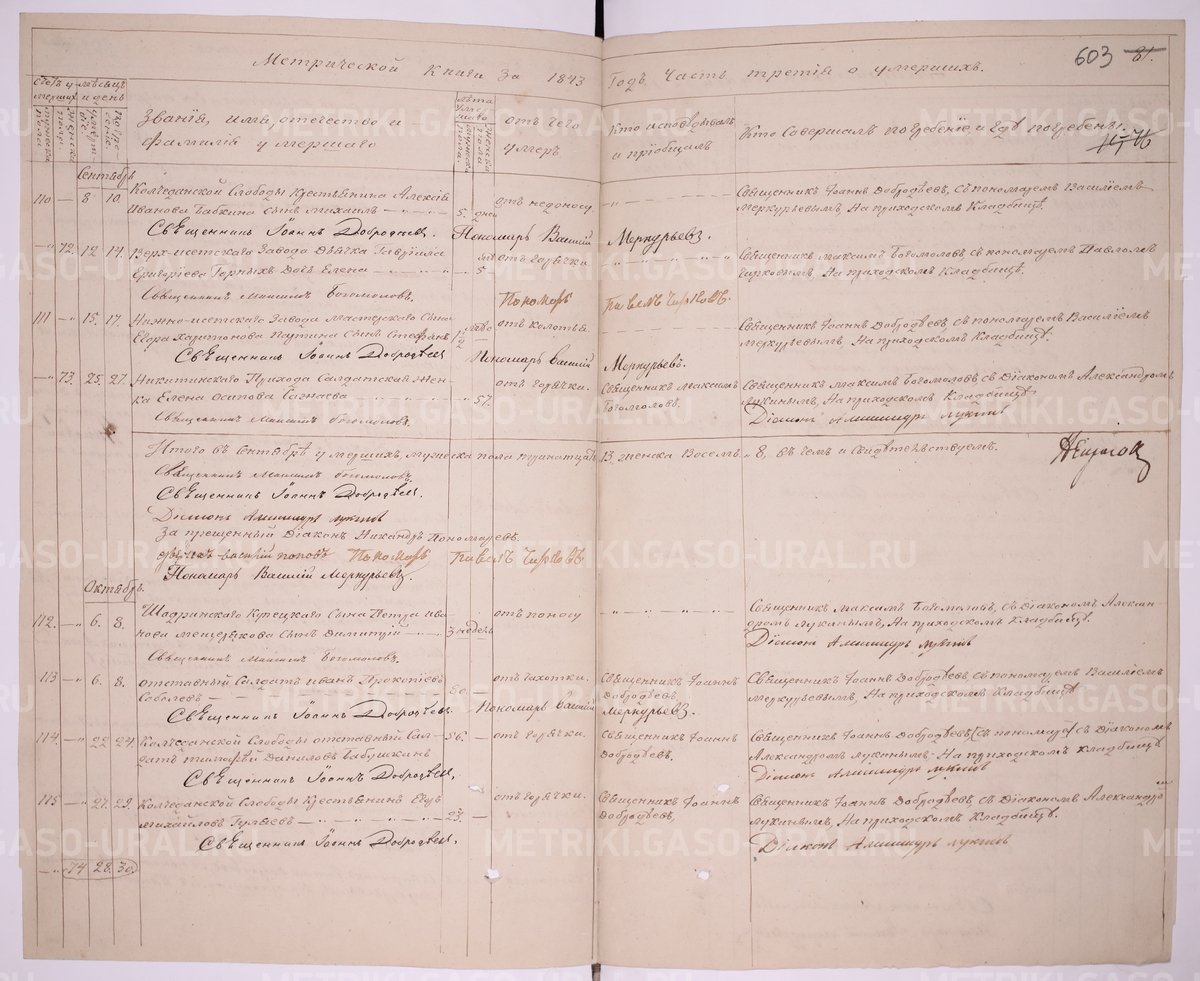 Метрической Книги за 1843 Годъ Часть третія о умершихъ.
603 81.
Счетъ умершихъ
мѣсяцъ и день
лѣта
Званія, имя, отчество и
фамилія умершаго
отъ чего
умеръ
Кто исповѣдывалъ
и пріобщалъ
Кто Совершалъ погребеніе и Гдѣ погребены.
Сентябрь
110 — 8 10. Колчеданской Слободы Крестьянина Алексѣя
Иванова Бабкина Сынъ Михаилъ 5. дней отъ недоносу
Священникъ Іоаннъ Добродѣевъ, Съ пономаремъ Василіемъ
Меркурьевымъ, На приходскомъ Кладбищѣ.
Священникъ Іоаннъ Добродѣевъ. Пономарь Василій Меркурьевъ.
— 72. 12 14. Верх-исетскаго Завода Дьячка Гавріила
Григоріева Горныхъ Дочь Елена 5 отъ горячки
Священникъ Максимъ Богомоловъ, Съ пономаремъ Павломъ
Чирковымъ, На приходскомъ Кладбищѣ.
Священникъ Максимъ Богомоловъ. Пономарь Павелъ Чирковъ.
111 — 15. 17. Нижно-исетскаго Завода Мастерскаго Сына
Егора Харитонова Паутина Сынъ Стефанъ отъ колотья.
Священникъ Іоаннъ Добродѣевъ, Съ пономаремъ Василіемъ
Меркурьевымъ, На приходскомъ Кладбищѣ.
Священникъ Іоаннъ Добродѣевъ Пономарь Василій Меркурьевъ.
— 73. 25. 27. Никитинскаго Прихода Салдатская Жен-
ка Елена Осипова 57. отъ горячки.
Священникъ Максимъ
Богомоловъ.
Священникъ Максимъ Богомоловъ, съ Діакономъ Александромъ
Лукинымъ, На приходскомъ Кладбищѣ
Діаконъ Александръ Лукинъ
Священникъ Максимъ Богомоловъ.
Итого въ Сентябрѣ умершихъ, мужеска пола тринатцать 13. женска Восемь 8, въ чемъ и Свидѣтельствуемъ.
Священникъ Максимъ Богомоловъ
Священникъ Іоаннъ Добродѣевъ.
Діаконъ Александръ Лукинъ
Запрещенный Діаконъ Никандръ Пономаревъ.
Дьячекъ Василій Поповъ Пономарь Павелъ Чирковъ
Пономарь Василій Меркурьевъ.
Октябрь.
112. — 6. 8. Шадринскаго Купецкаго Сына Петра Ива-
нова Сынъ Димитрій 3 недель отъ поносу
Священникъ Максимъ Богомоловъ, Съ Діакономъ Алексан-
дромъ Лукинымъ, На приходскомъ Кладбищѣ.
Діаконъ Александръ Лукинъ
Священникъ Максимъ Богомоловъ.
113 — 6. 8. отставный Салдатъ Иванъ Прокопіевъ
Соболевъ 80. отъ чахотки.
Священникъ Іоаннъ
Добродѣевъ
Священникъ Іоаннъ Добродѣевъ Съ пономаремъ Василіемъ
Меркурьевымъ, На приходскомъ Кладбищѣ
Священникъ Іоаннъ Добродѣевъ. Пономарь Василій Меркурьевъ.
114 — 22 24. Колчеданской Слободы отставный Сал-
датъ Тимофей Даниловъ Бабушкинъ 56. — отъ горячки.
Священникъ Іоаннъ
Добродѣевъ.
Священникъ Іоаннъ Добродѣевъ съ Діакономъ
Александромъ Лукинымъ, На приходскомъ кладбищѣ
Діаконъ Александръ Лукинъ
Священникъ Іоаннъ Добродѣевъ,
115 — 27. 29. Колчеданской Слободы Крестьянинъ
Михайловъ 23. — отъ горячки.
Священникъ Іоаннъ
Добродѣевъ,
Священникъ Іоаннъ Добродѣевъ, Съ Діакономъ Александро
мъ
Лукинымъ, На приходскомъ Кладбищѣ.
Священникъ Іоаннъ Добродѣевъ, Діаконъ Александръ Лукинъ
— 74 28. 30.
METRIKI.GASO-URAL.RU